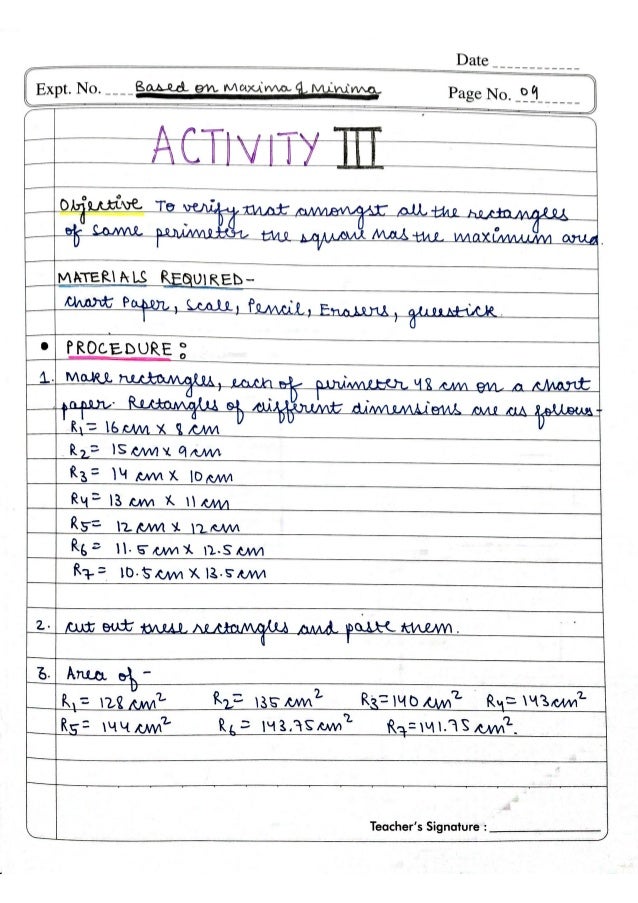 Date
Expt. No. Based on Maxima & Minima
Page No. 09
ACTIVITY III
Objective To verify that amongst all the rectangles
of same perimeter the square has the maximum area.
MATERIALS REQUIRED-
Chart Paper, Scale, Pencil, Erasers, gluestick.
• PROCEDURE:
1. Make rectangles, each of perimeter 48 cm on a chart
paper. Rectangles of different dimensions are as follows-
R1= 16cm x 8cm
R2= 15cm x 9cm
R3= 14 cm x 10cm
R4= 13 cm x 11cm
R5= 12cm x 12cm
R6= 11.5cm x 12.5cm
R7= 10.5cm x 13.5cm
2. Cut out these rectangles and paste them.
3. Area of -
R1= 128cm² R2= 135cm² R3=140cm² R4=143cm²
R5= 144cm² R6= 143.75cm² R7=141.75cm².
Teacher's Signature :